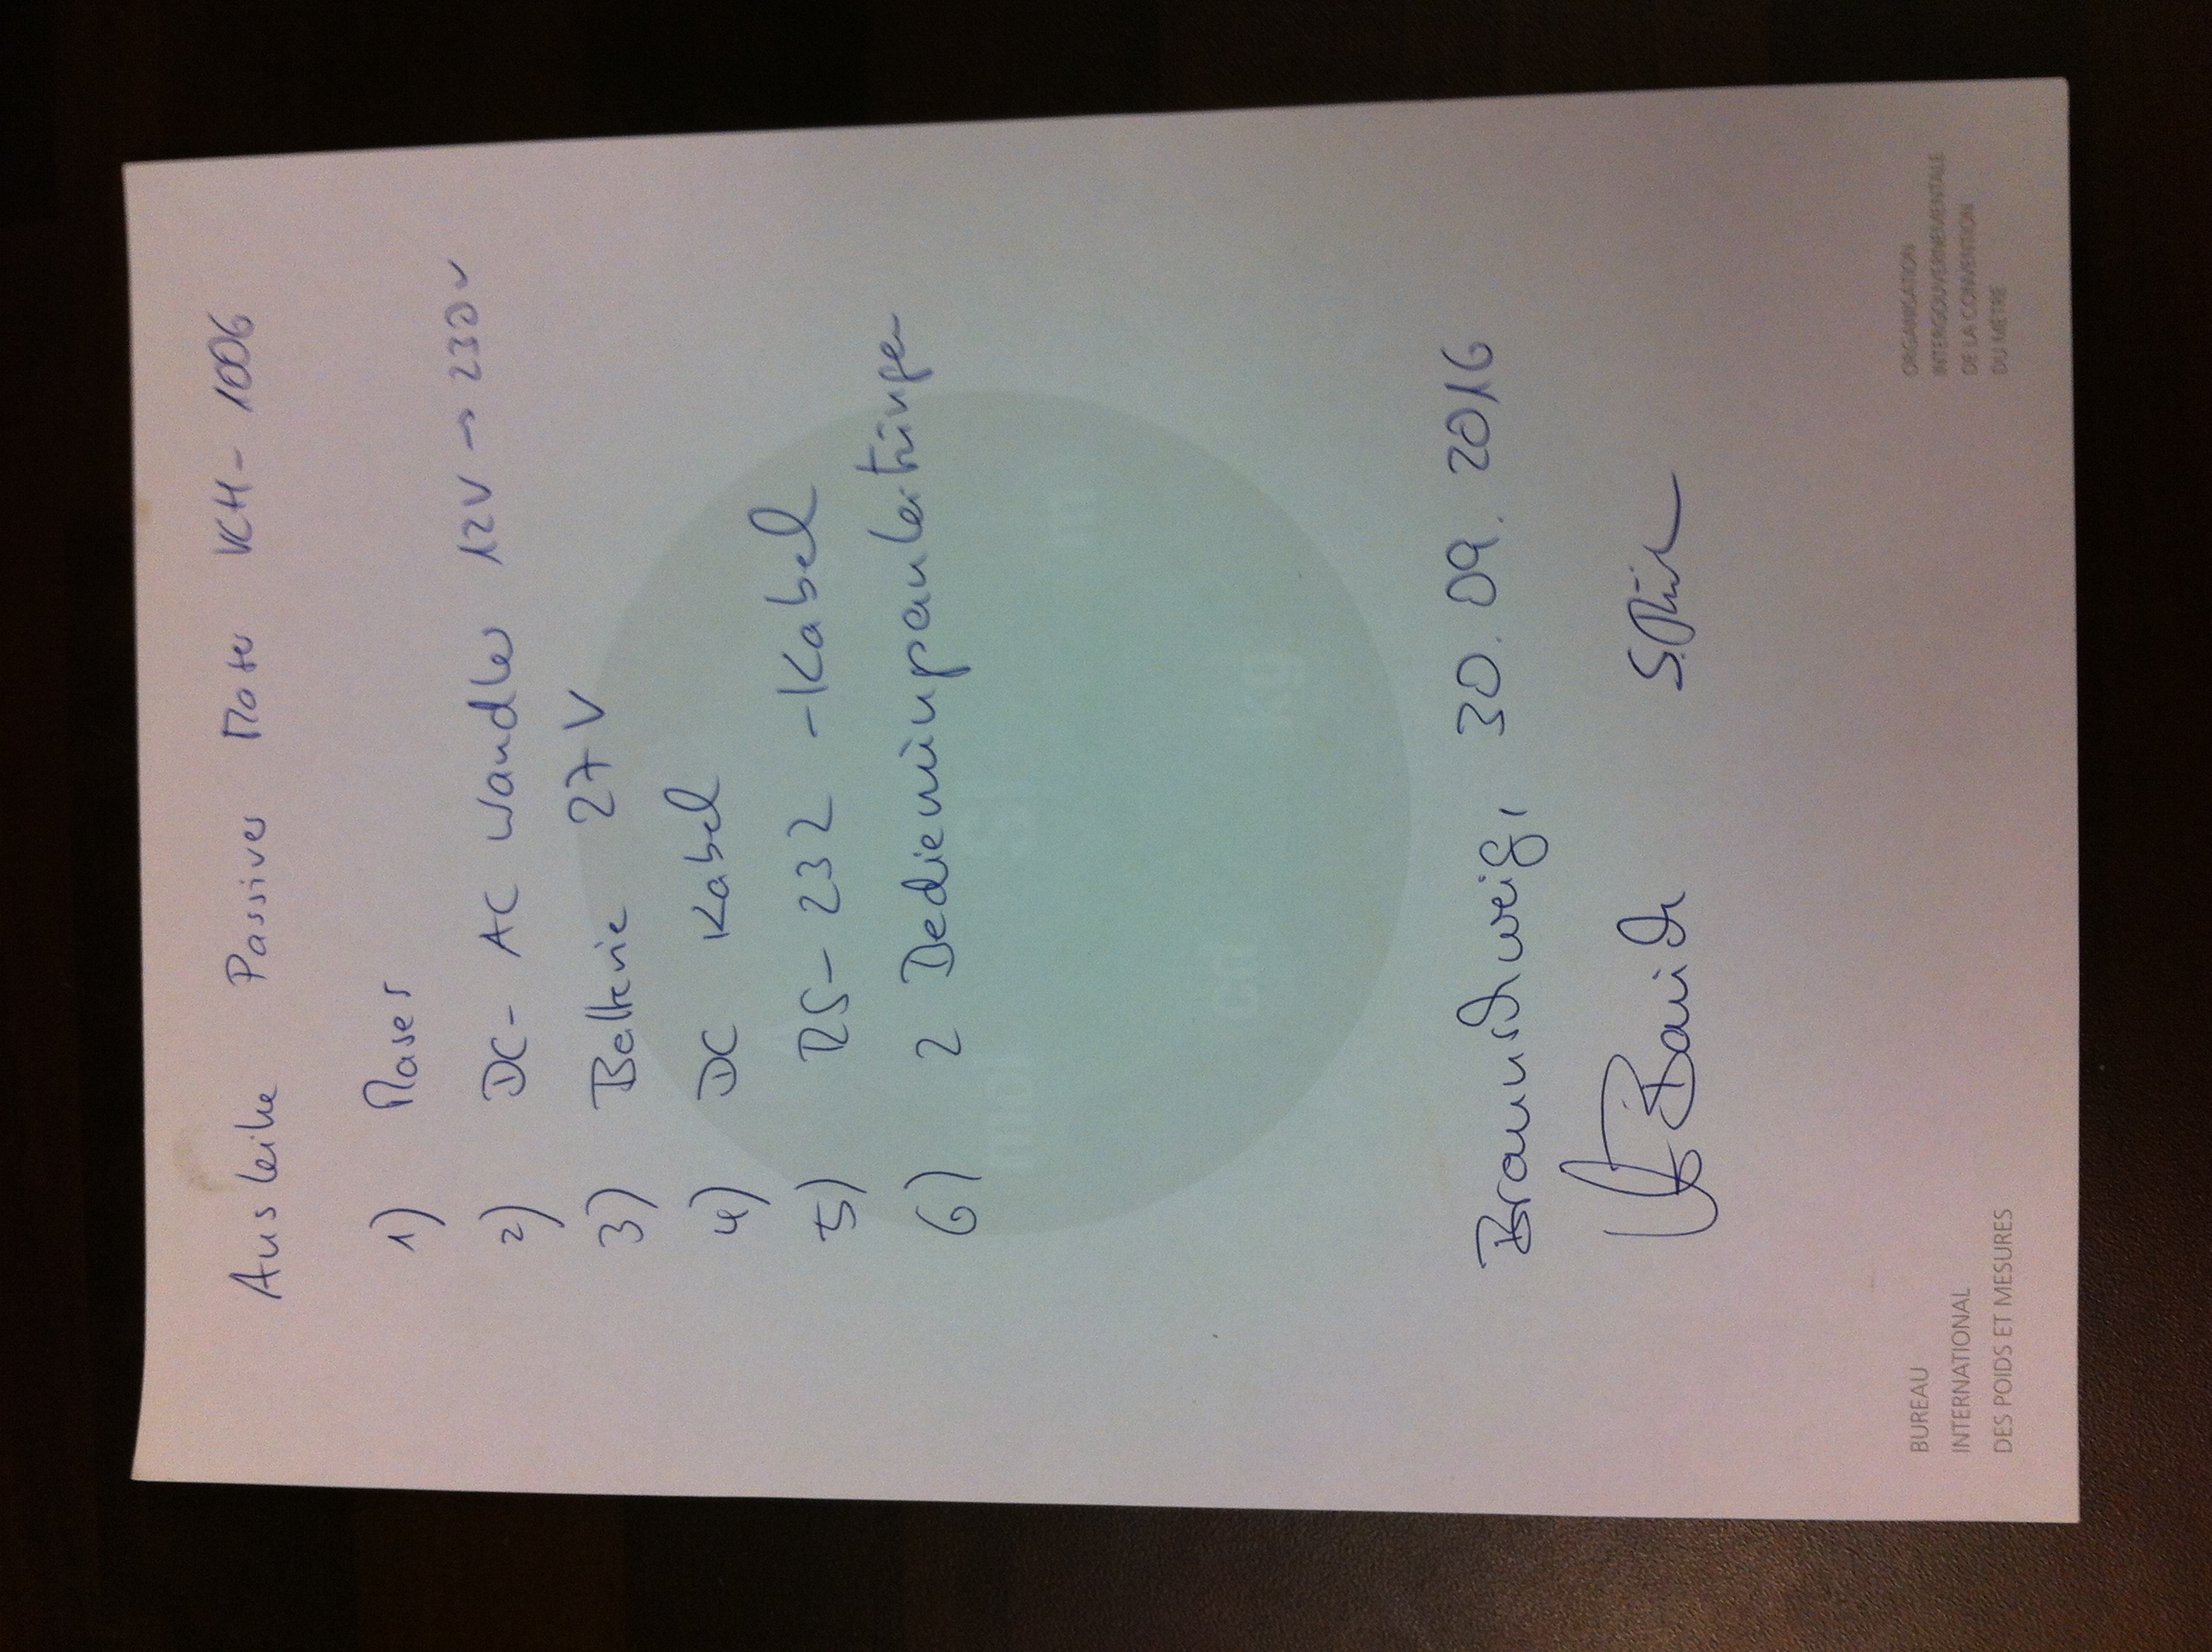 Ausleihe Passiver Maser VCH-1006
1) Maser
2) DC-AC Wandler 12V → 230V
3) Batterie 27V
4) DC Kabel
5) RS-232-Kabel
6) 2 Bedienungsanleitungen
Braunschweig, 30.09.2016
BUREAU
INTERNATIONAL
DES POIDS ET MESURES
ORGANISATION
INTERGOUVERNEMENTALE
DE LA CONVENTION
DU MÈTRE
mol
cd
kg
m